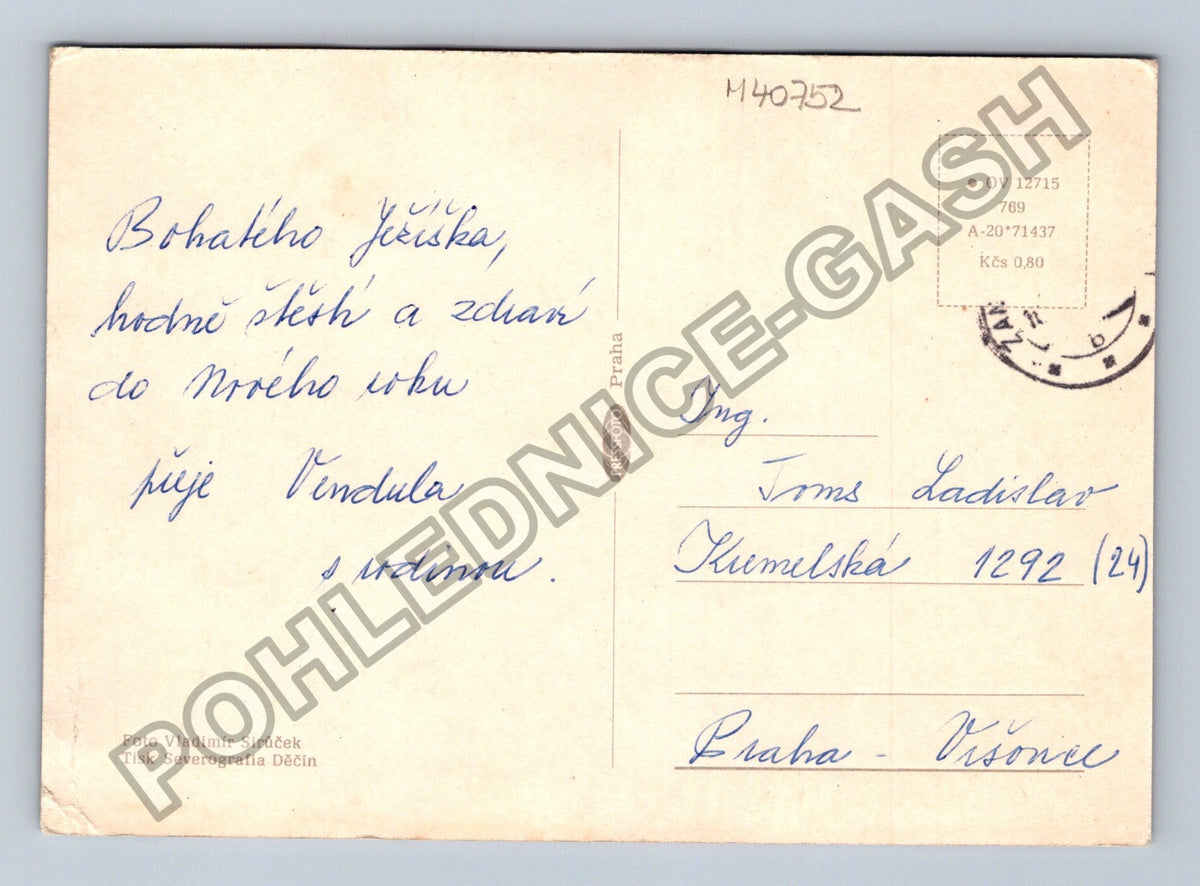 M40752
Bohatého Ježíška,
hodně štěstí a zdraví
do Nového roku
přeje Vendula
s rodinou.
Foto Vladimír Sirůček
Tisk Severografia Děčín
PRESSFOTO Praha
OV 12715
769
A-20*71437
Kčs 0,80
ZAM
b
Ing.
Toms Ladislav
Kremelská 1292 (24)
Praha - Vršovice
POHLEDNICE-GASH